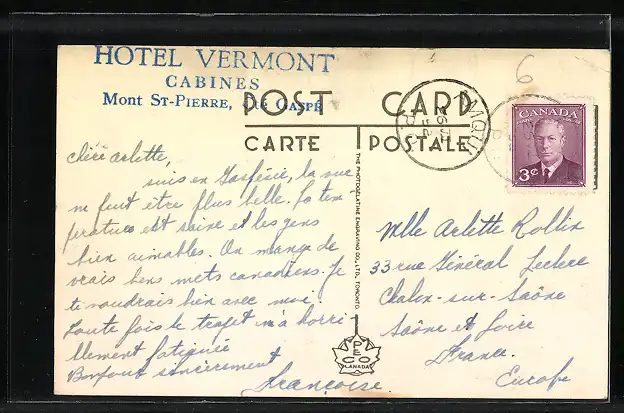 HOTEL VERMONT
CABINES
Mont St-Pierre, GASPÉ
POST CARD
CARTE POSTALE
CANADA
3¢
chère Arlette,
suis en Gaspésie, la vue
ne peut être plus belle. La tem
perature est saine et les gens
bien aimables. On mange de
vrais bons mets canadiens. Je
te voudrais bien avec moi
Toute fois le trajet m'a horri
blement fatiguée
Bonjour sincèrement
Françoise
THE PHOTOGELATINE ENGRAVING CO., LTD., TORONTO
PECO
CANADA
Mlle Arlette Rollin
33 rue Général Leclerc
Chalon-sur-Saône
Saône et Loire
France.
Europe
6